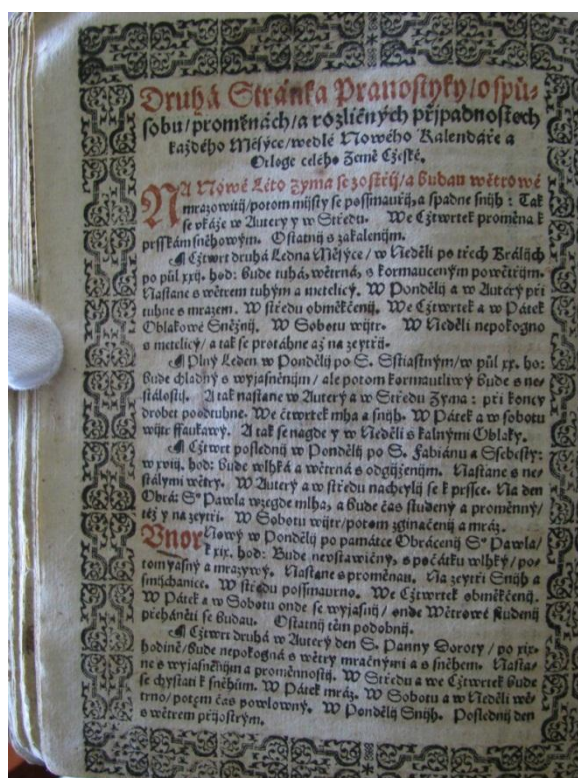 Druhá Stránka Pranostyky/o spů-
sobu/proměnách/a rozličných přjpadnostech
každého Měsýce/wedlé Nowého Kalendáře a
Orloge celého Země Cžeské.
NA Nowé Léto Zyma se zostřij/a budau wětrowé
mrazowitij/potom mijsty se possmauřij/a spadne snijh : Tak
se vkáže w Autery y w Středu. We Cžtwrtek proměna k
prsskám sněhowým. Ostatnij s zakalenijm.
¶ Cžtwrt druhá Ledna Měsýce / w Neděli po třech Králijch
po půl xxij. hod: bude tuhá, wětrná, s kormauceným powětřijm.
Nastane s wětrem tuhým a metelicý. W Pondělij a w Auterý při
tuhne s mrazem. W středu obměkčenij. We Cžtwrtek a w Pátek
Oblakowé Sněžnij. W Sobotu wijtr. W Neděli nepokogno
s metelicý/a tak se protáhne až na zeytřij.
¶ Plný Leden w Pondělij po S. Sstiastným/w půl xx. ho:
bude chladný s wyjasněnijm / ale potom kormautliwý bude s ne-
stálostij. A tak nastane w Auterý a w Středu Zyma : při koncy
drobet poodtuhne. We čtwrtek mha a snijh. W Pátek a w sobotu
wijtr ffaukawý. A tak se nagde y w Neděli s kalnými Oblaky.
¶ Cžtwrt poslednij w Pondělij po S. Fabiánu a Ssebesty:
w xviij. hod: bude wlhká a wětrná s odgijženijm. Nastane s ne-
stálymi wětry. W Auterý a w středu nachylij se k prssce. Na den
Obrá: Sº Pawla wzegde mlha, a bude čas studený a proměnný/
též y na zeytři. W Sobotu wijtr/potom zginačenij a mráz.
Vnor Nowý w Pondělij po památce Obrácenij Sº Pawla/
k xix. hod: Bude neustawičný, s počátku wlhký / po-
tom yasný a mrazywý. Nastane s proměnau. Na zeytři Snijh a
smijchanice. W středu possmaurno. We Cžtwrtek obměkčenij.
W Pátek a w Sobotu onde se wyjasnij / onde Wětrowé studenij
přeháněti se budau. Ostatnij těm podobnij.
¶ Cžtwrt druhá w Auterý den S. Panny Doroty / po xix.
hodině/bude nepokogná s wětry mračnými a s sněhem. Nasta-
ne s wyjasněnijm a proměnnostij. W Středu a we Cžtwrtek bude
se chystati k sněhům. W Pátek mráz. W Sobotu a w Neděli wě-
trno/potom čas powlowný. W Pondělij Snijh. Poslednij den
s wětrem přijostrým.